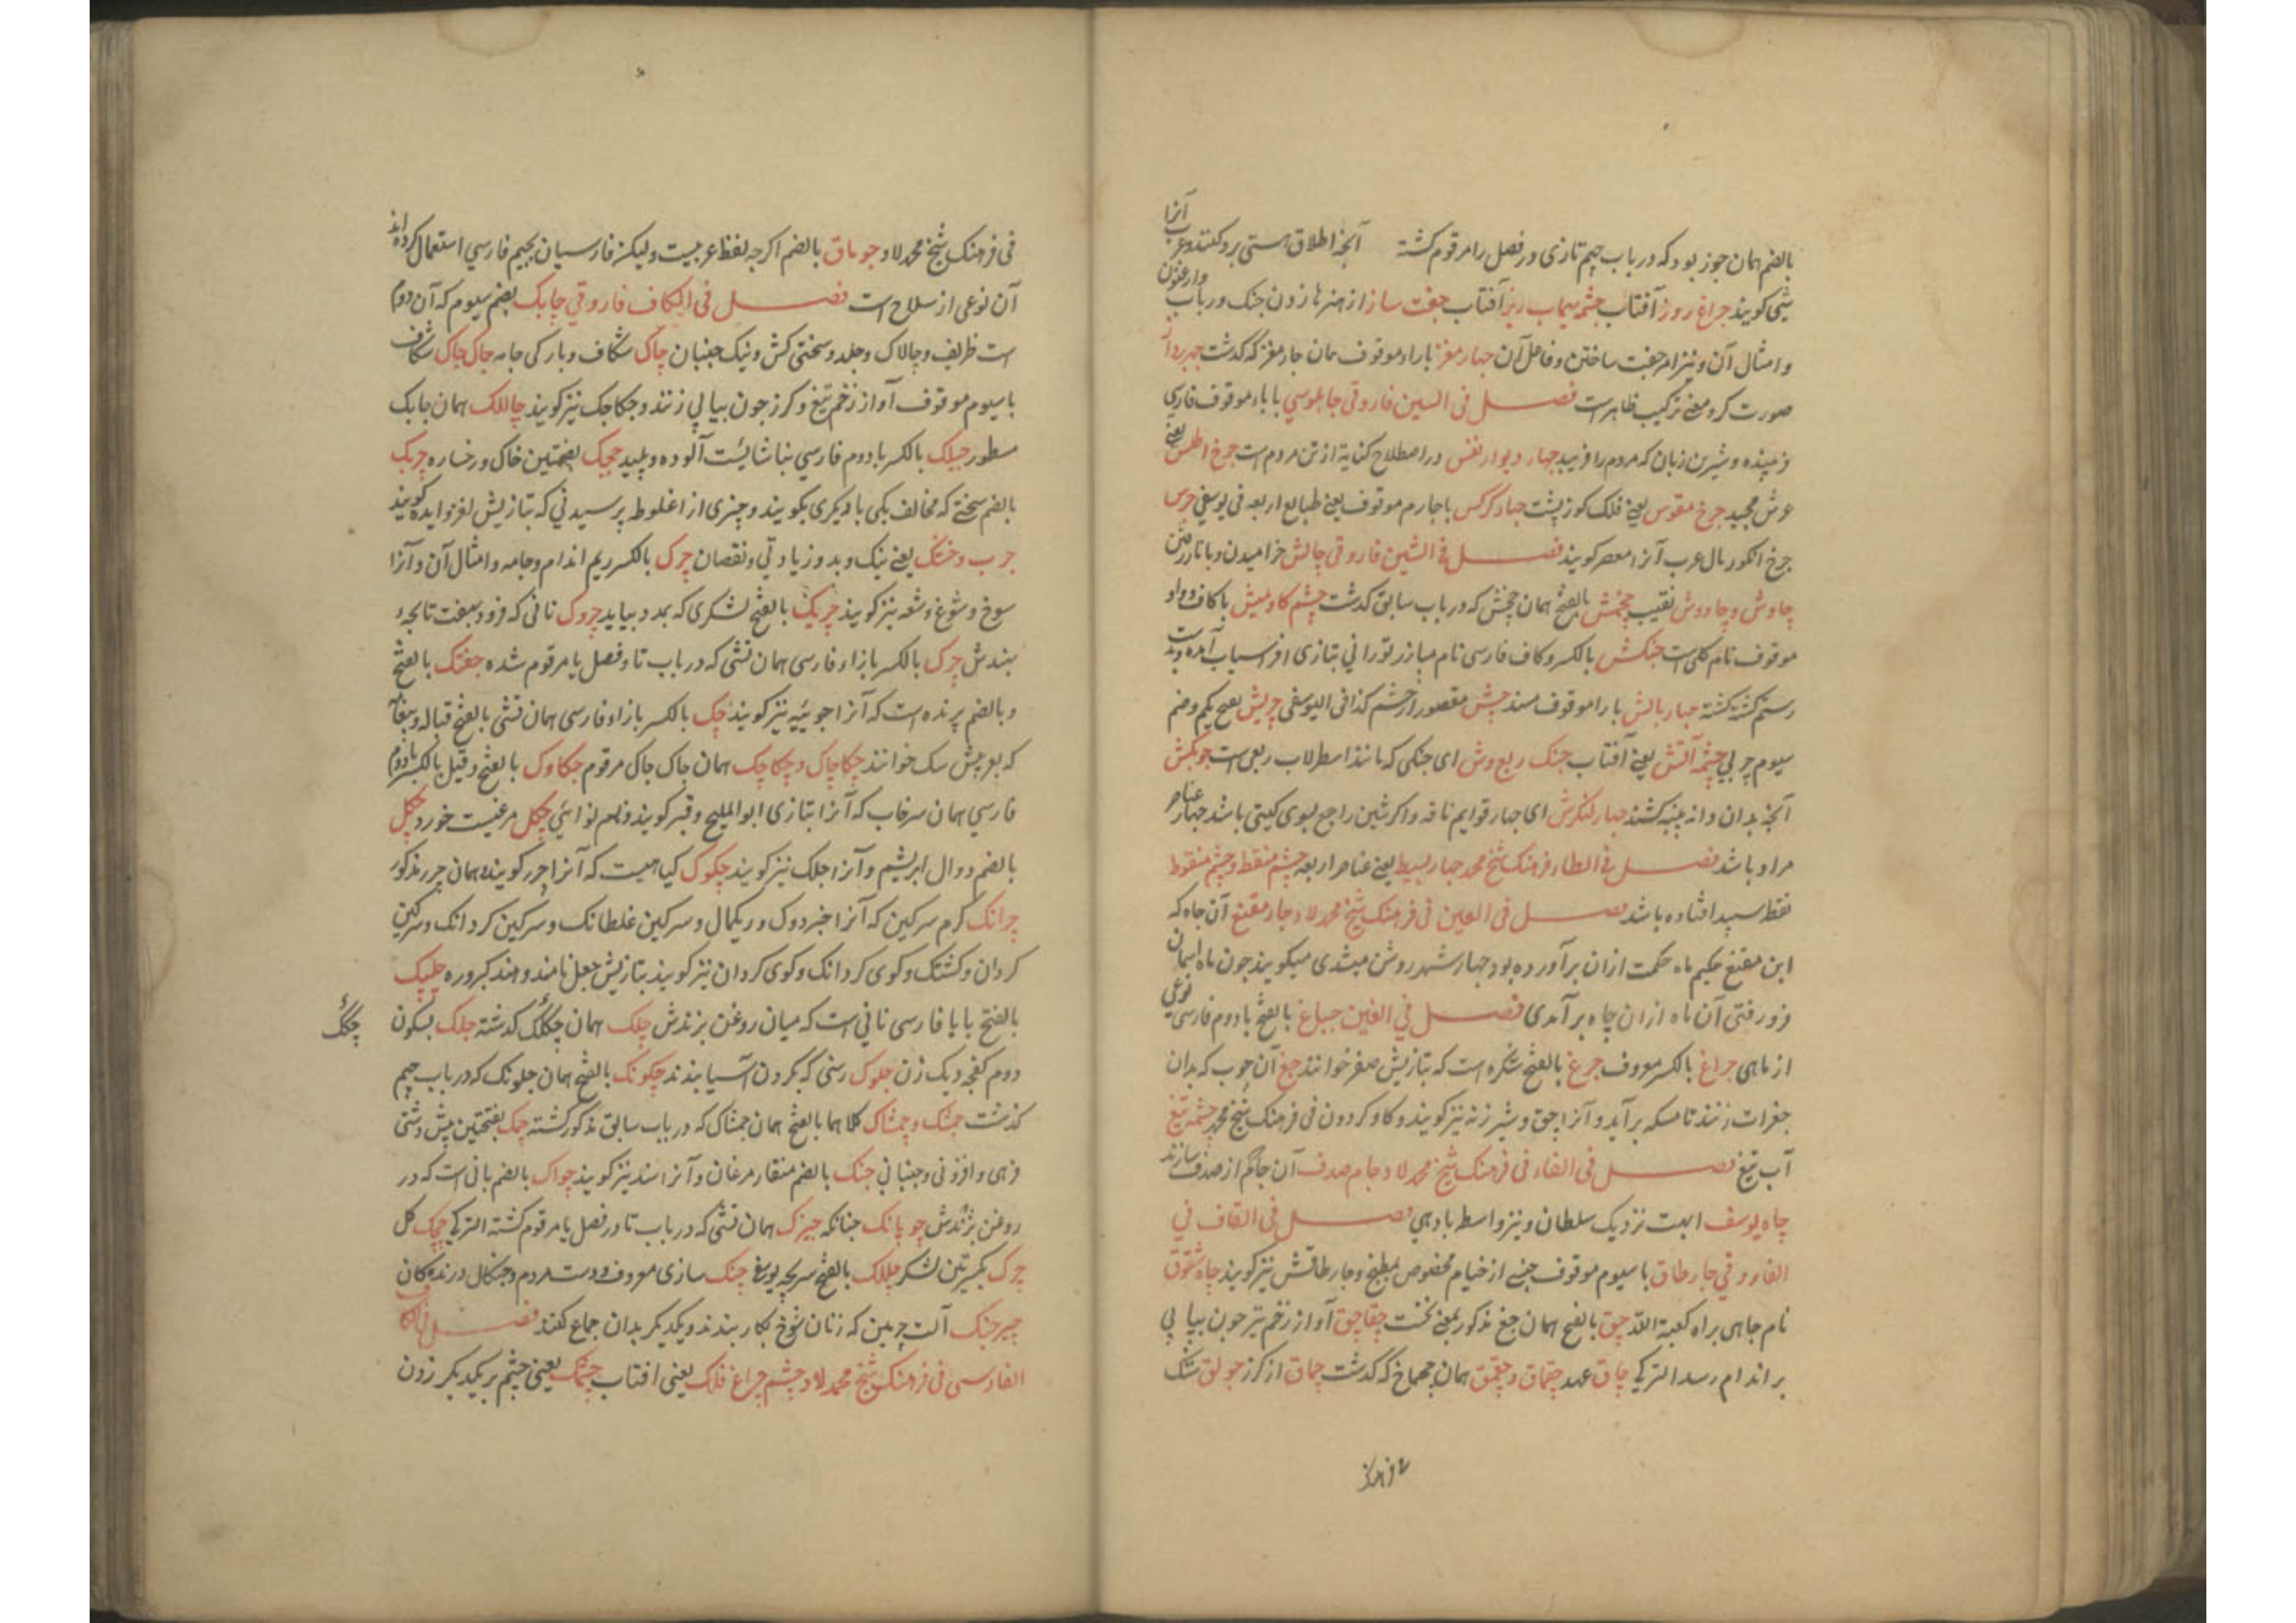 بالضم همان جوز بود که در باب جیم تازی در فصل را مرقوم کشته آنجه اطلاق هستی برو کنند و عرب آنرا
شی کویند جراغ روز آفتاب جشمه سیماب ریز آفتاب جفت ساز از هنرها زدن جنک و رباب وارغنون
و امثال آن و نیز امر جفت ساختن و فاعل آن جهار مغز با راء موقوف همان جارمغز که کذشت جهره پرداز
صورت کر و معنی ترکیب ظاهر است فصل فی السین فاروقی جابلوسی با باء موقوف فارسی
فریبنده و شیرین زبان که مردم را فریبد جهار دیوار نفس در اصطلاح کنایة از تن مردم است جرخ اطلس یعنی
عرش مجید جرخ مقوس یعنی فلک کوز پشت جهار کرکس با جارم موقوف یعنی طبایع اربعه فی یوسفی جرس
جرخ انکور مال عرب آنرا معصر کویند فصل فی الشین فاروقی جالش خرامیدن و با ناز رفتن
جاوش و جاووش نقیب جخش بالفتح همان جخش که در باب سابق کذشت جشم کاومیش با کاف و واو
موقوف نام کلی است جنکش بالکسر و کاف فارسی نام مبارز تورانی بتازی افراسیاب آمده و بدست
رستم کشته کشته جهار بالش با راء موقوف مسند جش مقصور از جشم کذا فی الیوسفی جربش بفتح یکم و ضم
سیوم جربی جشمه آتش یعنی آفتاب جنک ربع وش ای جنکی که مانند اسطرلاب ربعی است جوبکش
آنجه بدان دانه پنبه کشند جهار لنکرش ای جهار قوایم ناقه و اکر شین راجع بسوی کیتی باشد جهار عناصر
مراد باشد فصل فی الطاء فرهنک شیخ محمد جهار بسیط یعنی عناصر اربعه جشم منقط و جشم منقوط
نقط سپید افتاده باشد فصل فی العین فی فرهنک شیخ محمد لاد جاه مقنع آن جاه که
ابن مقنع حکیم ماه حکمت ازان برآورده بود جهار شهر روشن میشدی میکویند جون ماه اسمان
فرو رفتی آن ماه ازان جاه برآمدی فصل فی الغین جباغ بالفتح با دوم فارسی نوعی
از ماهی جراغ بالکسر معروف جرغ بالفتح شکره است که بتازیش صقر خوانند جغ آن جوب که بدان
جغرات زنند تا مسکه برآید و آنرا جق و شیرزنه نیز کویند و کاو کردون فی فرهنک شیخ محمد جشمه تیغ
آب تیغ فصل فی الفاء فی فرهنک شیخ محمد لاد جام صدف آن جام که از صدف سازند
جاه یوسف اهیت نزدیک سلطان و نیز واسط بادهی فصل فی القاف فی
الفاروقی جارطاق با سیوم موقوف جنسی از خیام مخصوص بمطبخ و جارطاقش نیز کویند جاه شقوق
نام جاهی براه کعبة الله جق بالفتح همان جغ مذکور بمعنی نخست جقاجق آواز زخم تیر جون بیاپی
بر اندام رسد الترکی جاق عهد جقماق و جقمق همان جهماخ که کذشت جماق از کرز جولق تنک
۷ فرهنک
فی فرهنک شیخ محمد لاد جوماق بالضم اکرجه لفظ عربیست ولیکن فارسیان بجیم فارسی استعمال کرده اند
آن نوعی از سلاح است فصل فی الکاف فاروقی جابک بضم سیوم که آن دوم
است ظریف و چالاک و جلد و سختی کش و نیک جنبان چاک شکاف و بارکی جامه جاک جاک شکاف
با سیوم موقوف آواز زخم تیغ و کرز جون بیاپی زنند و جکاجک نیز کویند چالک همان جابک
مسطور جپلک بالکسر با دوم فارسی بناشایست آلوده و پلید ججک بفتحتین خال و رخساره چربک
بالضم سخنی که مخالف یکی با دیکری بکویند و چیزی از اغلوط پرسیدنی که بتازیش لغز و ایده کویند
جرب و خشک یعنی نیک و بد و زیادتی و نقصان چرک بالکسر ریم اندام و جامه و امثال آن و آنرا
سوخ و شوغ و شغه نیز کویند چریک بالفتح لشکری که بمدد بیاید چروک نانی که فرود سفت تا بجه
بندش چزک بالکسر با زاء فارسی همان تشی که در باب تا و فصل یا مرقوم شده جغتک بالفتح
و بالضم پرنده است که آنرا جوئیه نیز کویند چک بالکسر با زاء فارسی همان تشی بالفتح قباله و بیغانه
که بعربیش سک خوانند چکاچاک و چکاچک همان جاک جاک مرقوم جکاوک بالفتح و قیل بالکسر با دوم
فارسی همان سرخاب که آنرا بتازی ابوالملیح و قبر کویند و نام نوائی چکل مرغیست خورد چکل
بالضم دوال ابریشم و آنرا جلک نیز کویند چکوک کیاهیست که آنرا جرر کویند همان جرر مذکور
چرانک کرم سرکین که آنرا خبزدوک و ریکمال و سرکین غلطانک و سرکین کردانک و سرکین
کردان و کشتک و کوی کردانک و کوی کردان نیز کویند بتازیش جعل نامند و هند کبروره چلپک
بالفتح با باء فارسی نانی است که میان روغن بزندش چلک همان چکلک کذشته جلک بسکون
چکلک
دوم کفجه دیک زن جلوک رسنی که بکردن آسیا بندند چکونک بالفتح همان جلونک که در باب جیم
کذشت جمشک و چمشاک کلاهما بالفتح همان جمشاک که در باب سابق مذکور کشته جمک بفتحتین پیش دستی
فرهی و افزونی و جنبانی جنک بالضم منقار مرغان و آنرا سند نیز کویند چواک بالضم نانی است که در
روغن بزندش جوپانک جنانکه جیزک همان تشی که در باب تا و در فصل یا مرقوم کشته الترکی چچک کل
چرک بکسرتین لشکر جللک بالفتح سریجه یوسفی چنک سازی معروف و دست مردم و جنکال درندکان
چیرجنک آلت چرمین که زنان شوخ بکار بندند و یکدیکر بدان جماع کنند فصل فی الکاف
الفارسی فی فرهنک شیخ محمد لاد چشم چراغ فلک یعنی افتاب چشمک یعنی چشم بریکدیکر زدن